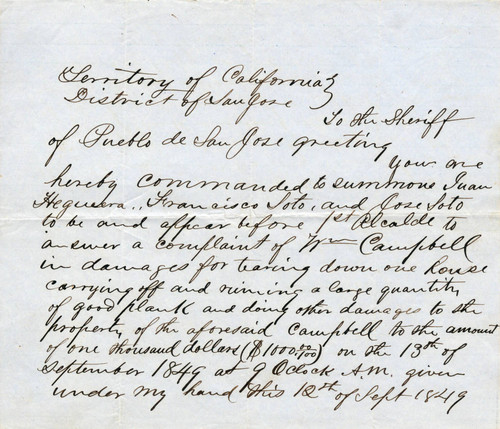 Territory of California }
District of San Jose
To the Sheriff
of Pueblo de San Jose greeting
you are
hereby commanded to summone Juan
Heguera., Francisco Soto, and Jose Soto
to be and appear before 1st Alcalde to
answer a complaint of Wm Campbell
in damages for tearing down one house
carrying off and ruining a large quantity
of good plank and doing other damages to the
property of the aforesaid Campbell to the amount
of one thousand dollars ($1000 00/100) on the 13th of
September 1849 at 9 Oclock A.M. given
under my hand this 12th of Sept 1849